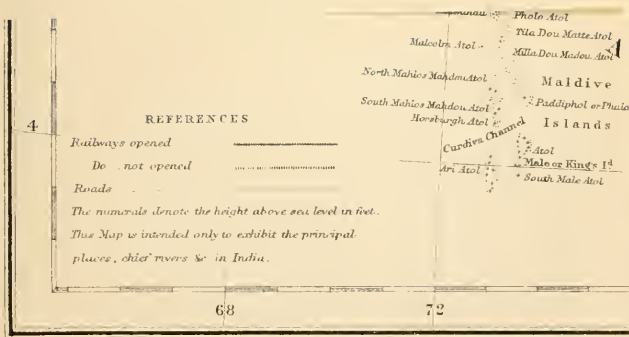 Pholo Atol
Tila Dou Matte Atol
Malcolm Atol
Milla Dou Madou Atol
North Mahlos Mahdou Atol
Maldive
South Mahlos Mahdou Atol
Paddiphol or
Horsburgh Atol
Islands
Cardiva Channel
Atol
Ari Atol
Male or King's Id
South Male Atol
4
REFERENCES
Railways opened
Do not opened
Roads
The numerals denote the height above sea level in feet.
This Map is intended only to exhibit the principal
places, chief rivers &c in India.
68
72